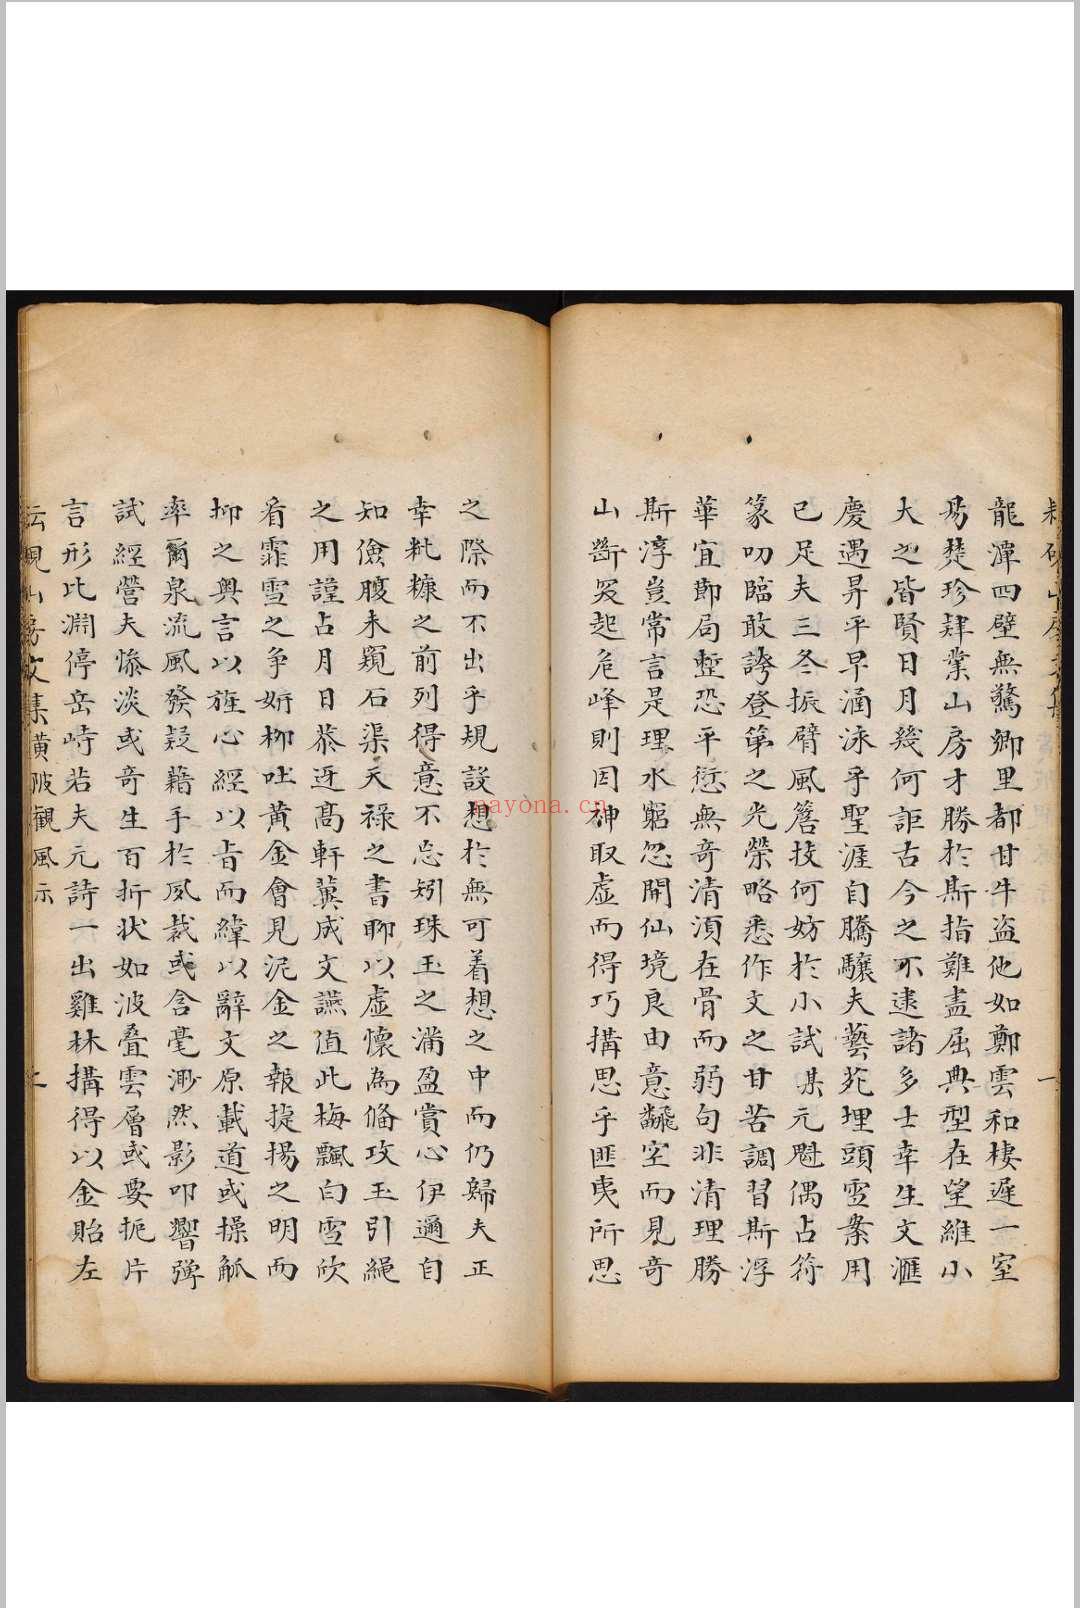 龍潭四壁無驚卿里都甘牛盗他如鄭雲和棲遲一室
昜楚珍肄業山房才勝於斯指難盡屈典型在望維小
大之皆賢日月幾何詎古今之不逮諸多士幸生文滙
慶遇昇平早涵泳乎聖涯自騰驤夫藝苑埋頭雪案用
已足夫三冬振臂風簷技何妨於小試某元魁偶占符
篆叨臨敢誇登第之光榮略悉作文之甘苦調習斯浮
華宜節局整恐平愆無奇清湏在骨而弱句非清理勝
斯淳豈常言是理水窮忽開仙境良由意飜空而見奇
山斷突起危峰則因神取虛而得巧搆思乎匪夷所思
之際而不出乎規設想於無可着想之中而仍歸夫正
幸粃糠之前列得意不忘矧珠玉之滿盈賞心伊邇自
知儉腹未窺石渠天禄之書聊以虛懷為脩攻玉引繩
之用謹占月日恭迓高軒冀成文讌值此梅飄白雪欣
看霏雪之争妍柳吐黄金會見泥金之報捷揚之明而
抑之奧言以旌心經以旨而緯以辭文原載道或操觚
率爾泉流風發疑藉手於夙裁或含毫渺然影叩響彈
試經營夫惨淡或奇生百折状如波疊雲層或要扼片
言形比淵停岳峙若夫元詩一出雞林搆得以金貽左
山房文集黄陂觀風示 上